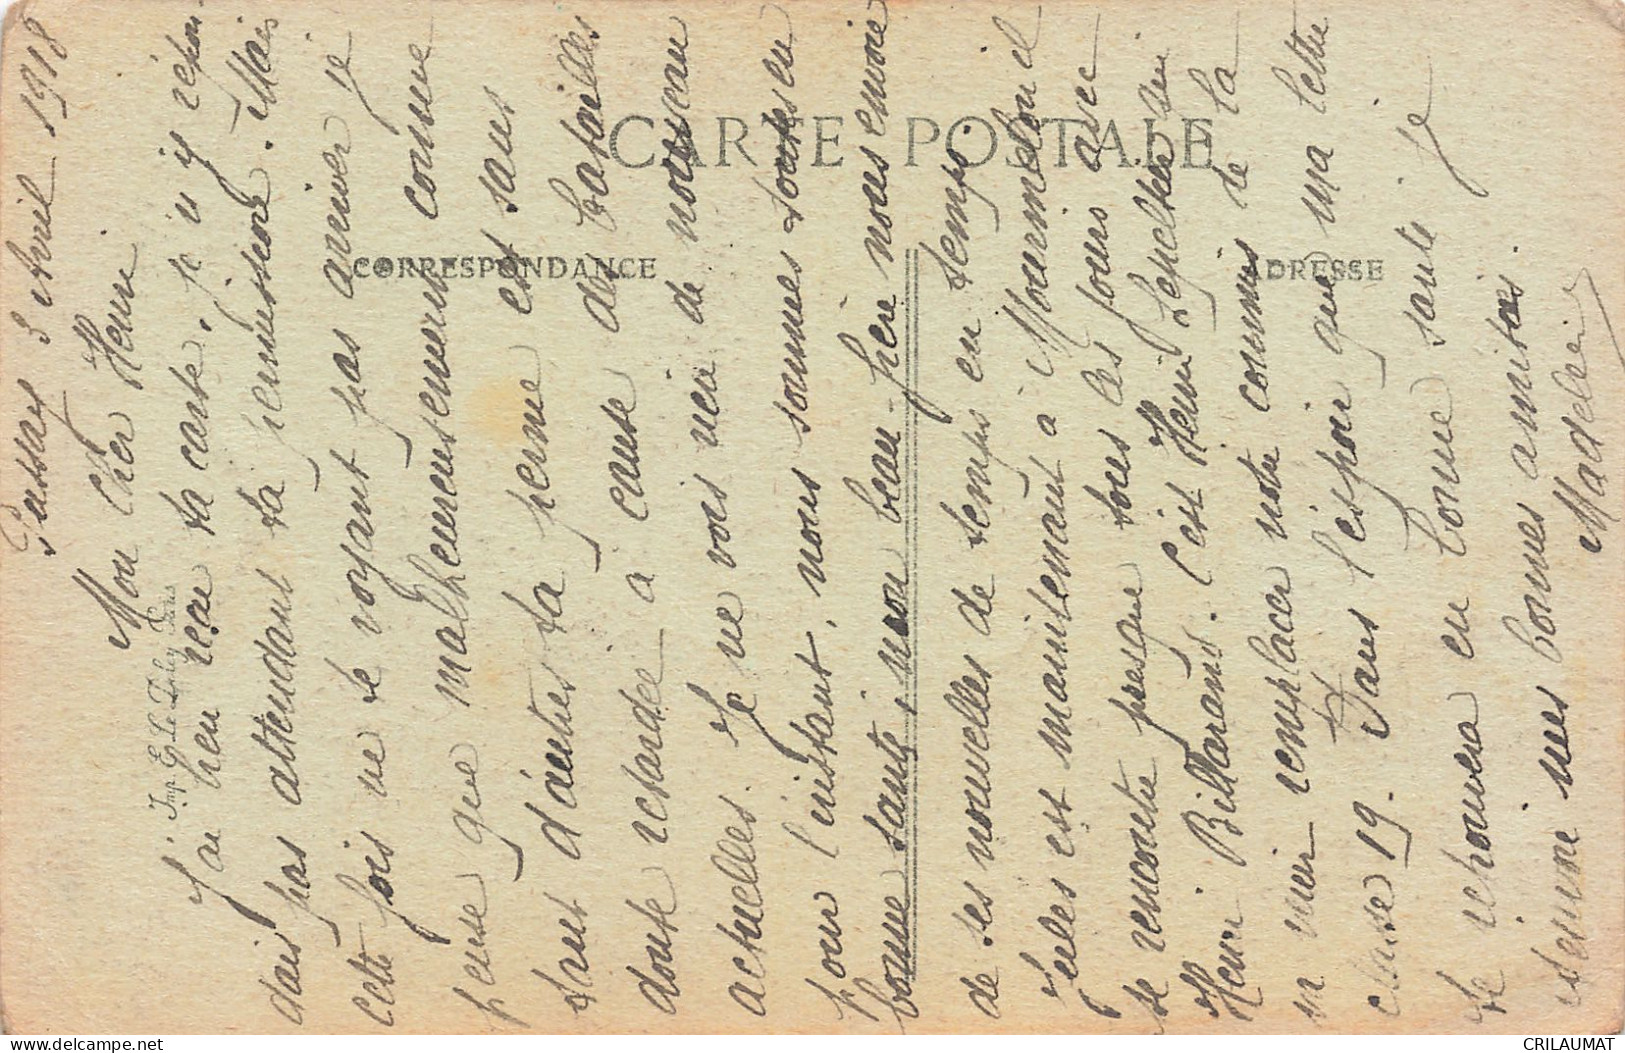 Passay 3 Avril 1918
Mon Cher Henri
J'ai bien reçu ta carte. je n'y répon-
dais pas attendant ta permission. Mais
cette fois ne te voyant pas arriver je
pense que malheureusement comme
tant d'autres ta perme est sans
doute retardée à cause de batailles
actuelles. Je ne vois rien de nouveau
pour l'instant, nous sommes toutes en
bonne santé, mon beau-frère nous envoie
de ses nouvelles de temps en temps
Jules est maintenant à Mourmelon il
se rencontre presque tous les jours avec
Henri Billarant. C'est Henri
va venir remplacer notre commis de la
classe 19. Dans l'espoir que ma lettre
te retrouvera en bonne santé je
termine mes bonnes amitiés
Madeleine
CARTE POSTALE
CORRESPONDANCE
ADRESSE
Imp. E. Le Deley Paris
delcampe.net
CRILAUMAT